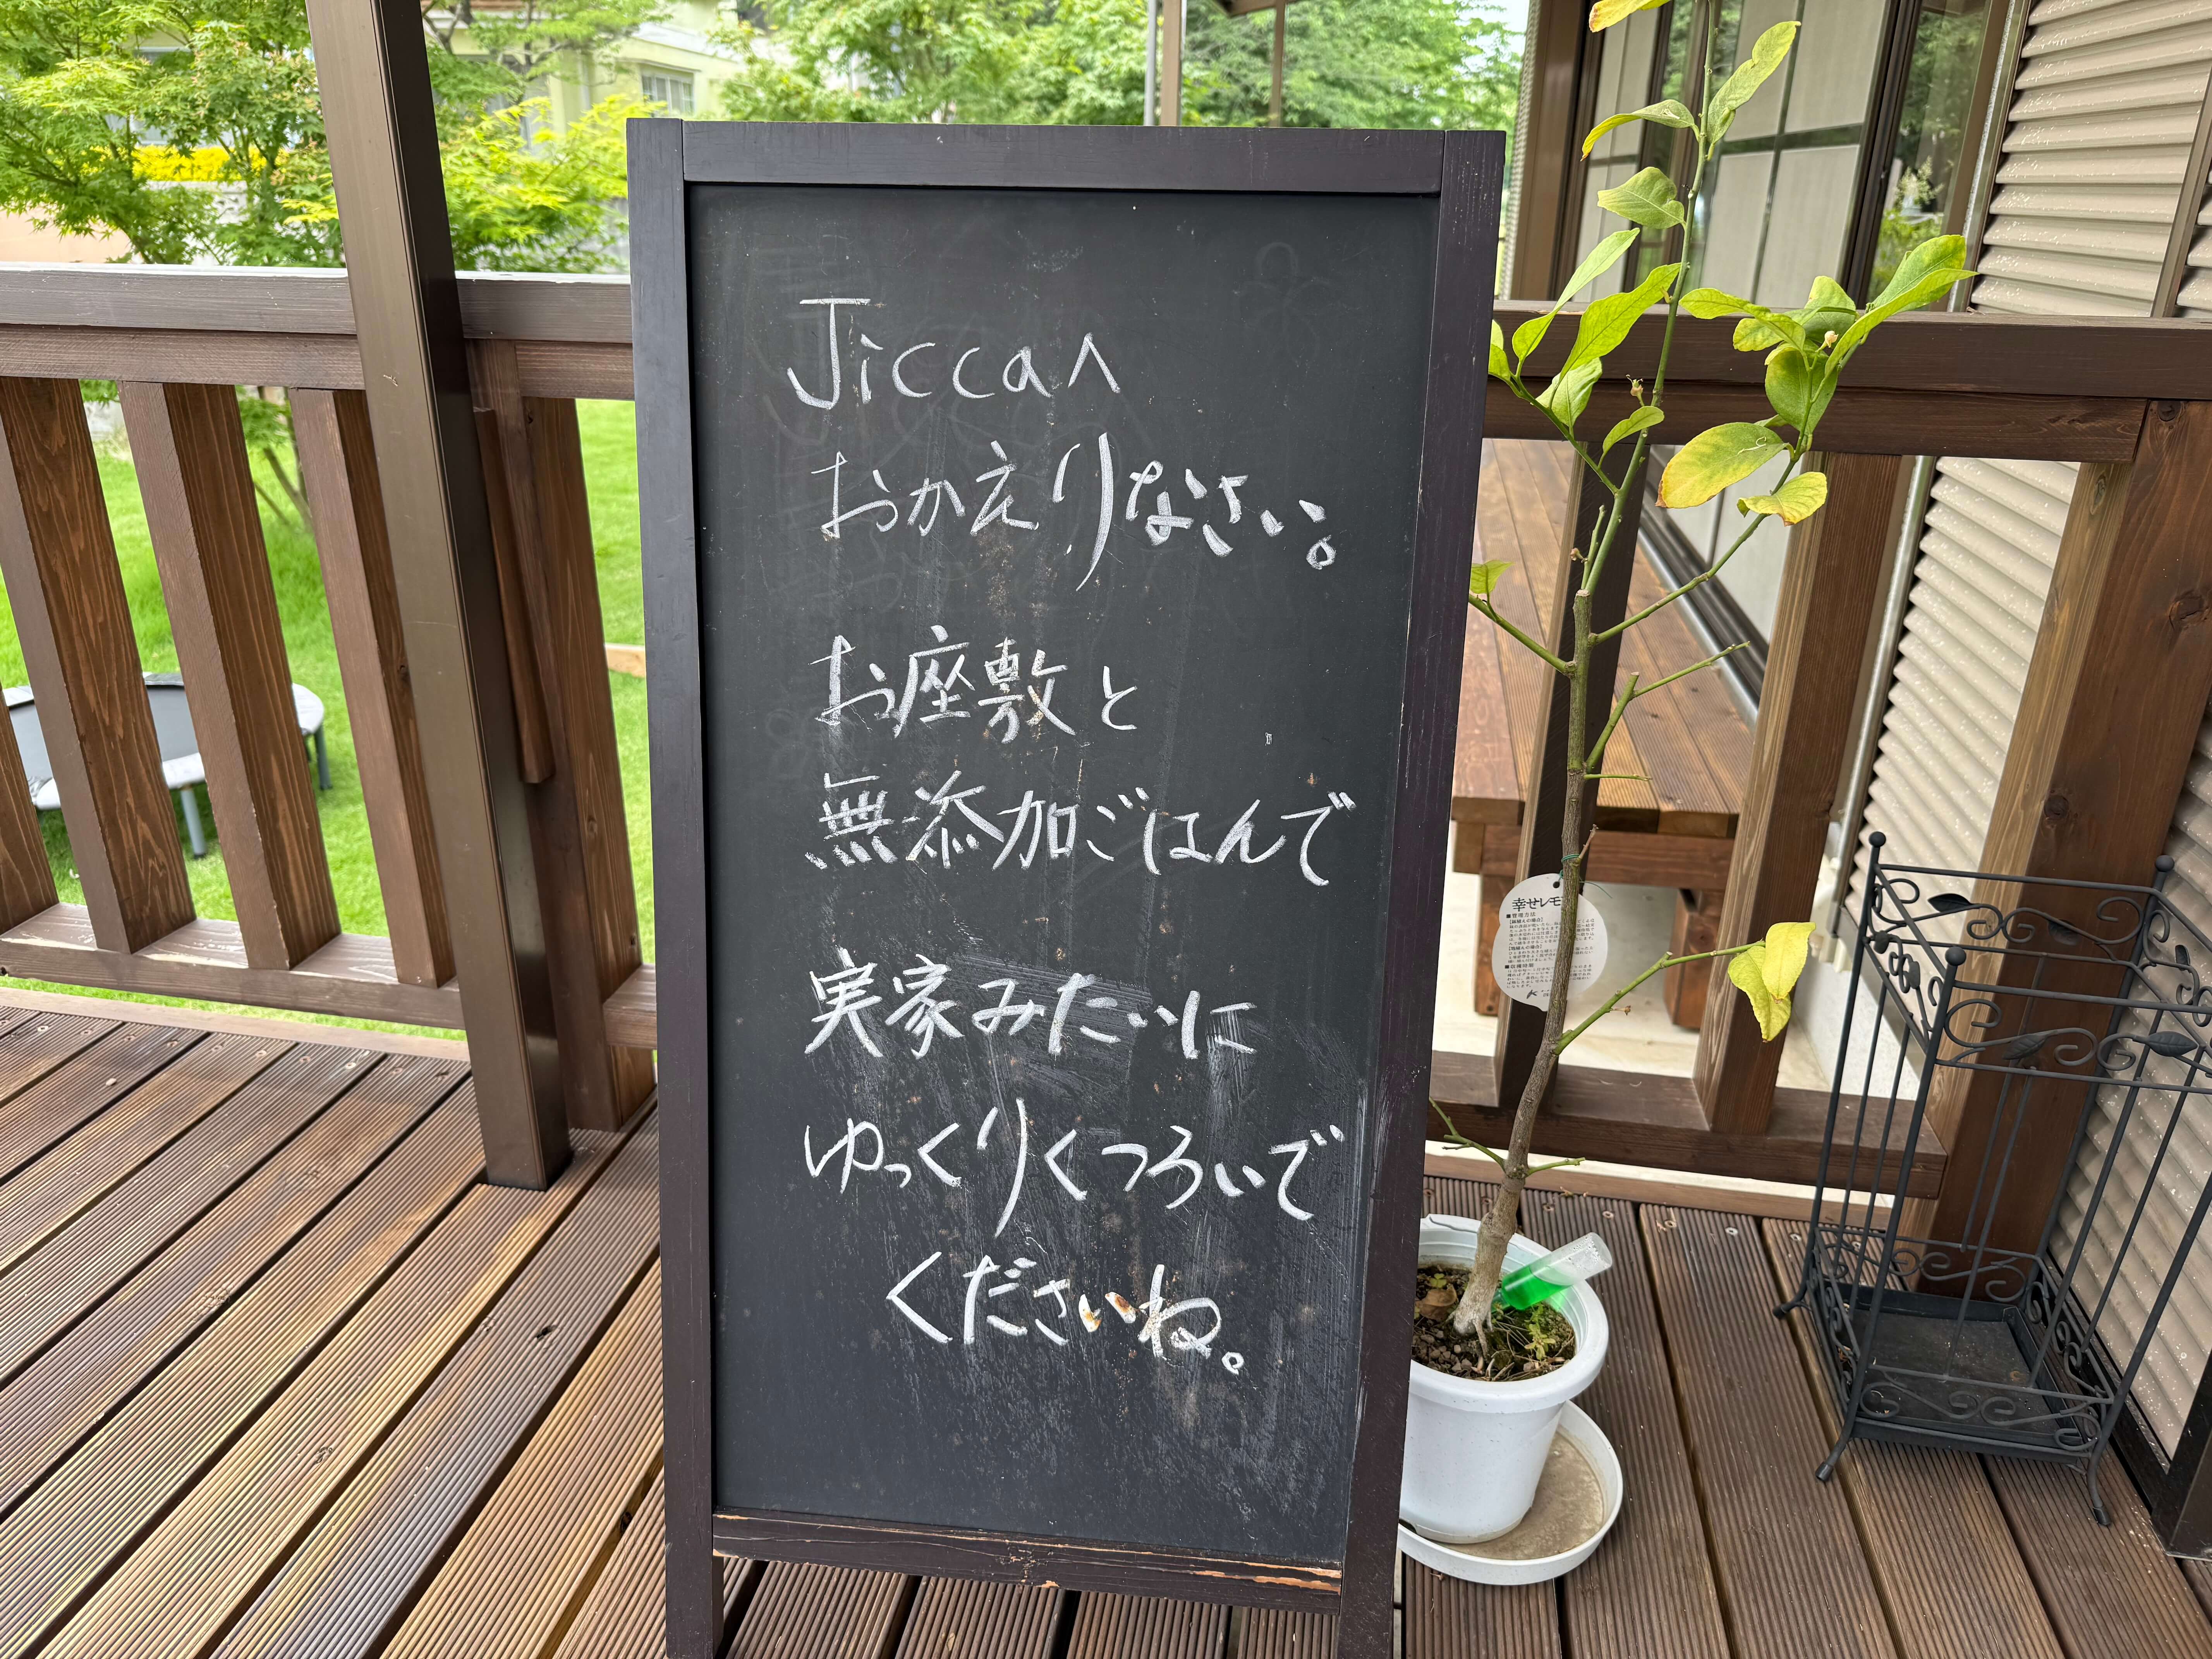 Jiccaへ
おかえりなさい。
お座敷と
無添加ごはんで
実家みたいに
ゆっくりくつろいで
くださいね。
幸せレモ
■管理方法